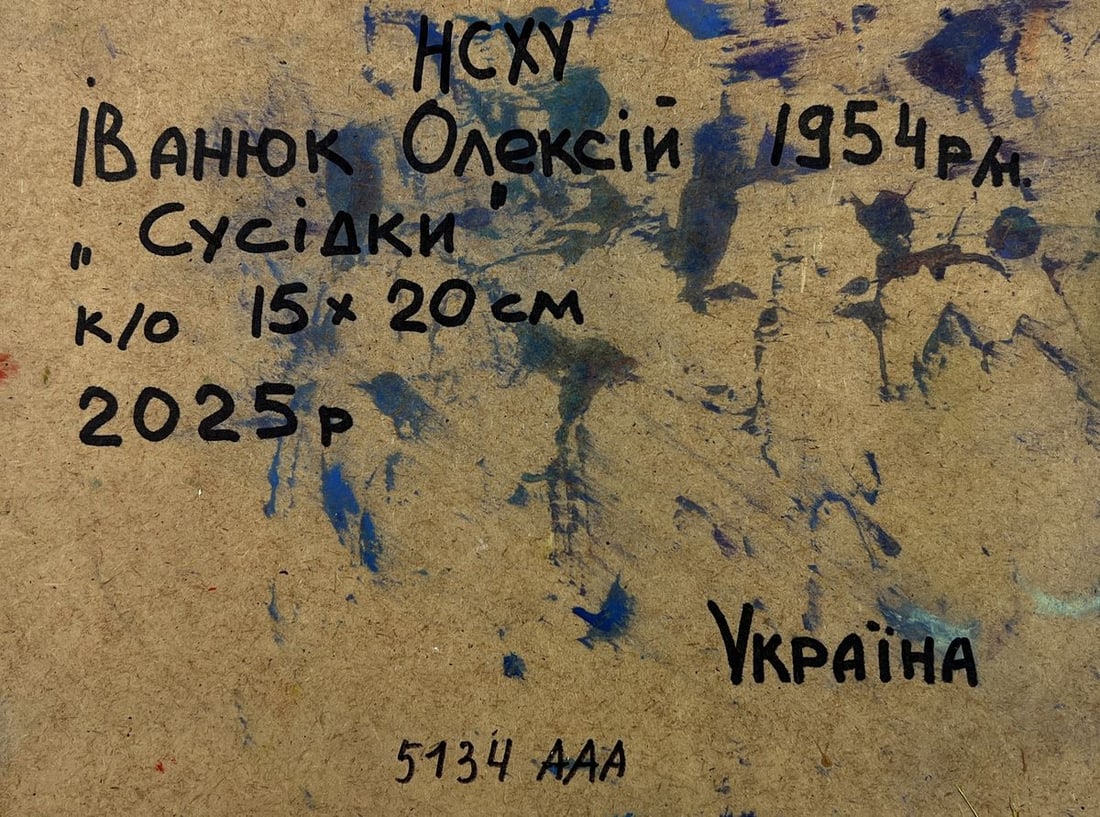 НСХУ
Іванюк Олексій 1954 р/н.
„Сусідки"
к/о 15 х 20 см
2025 р
Україна
5134 ААА